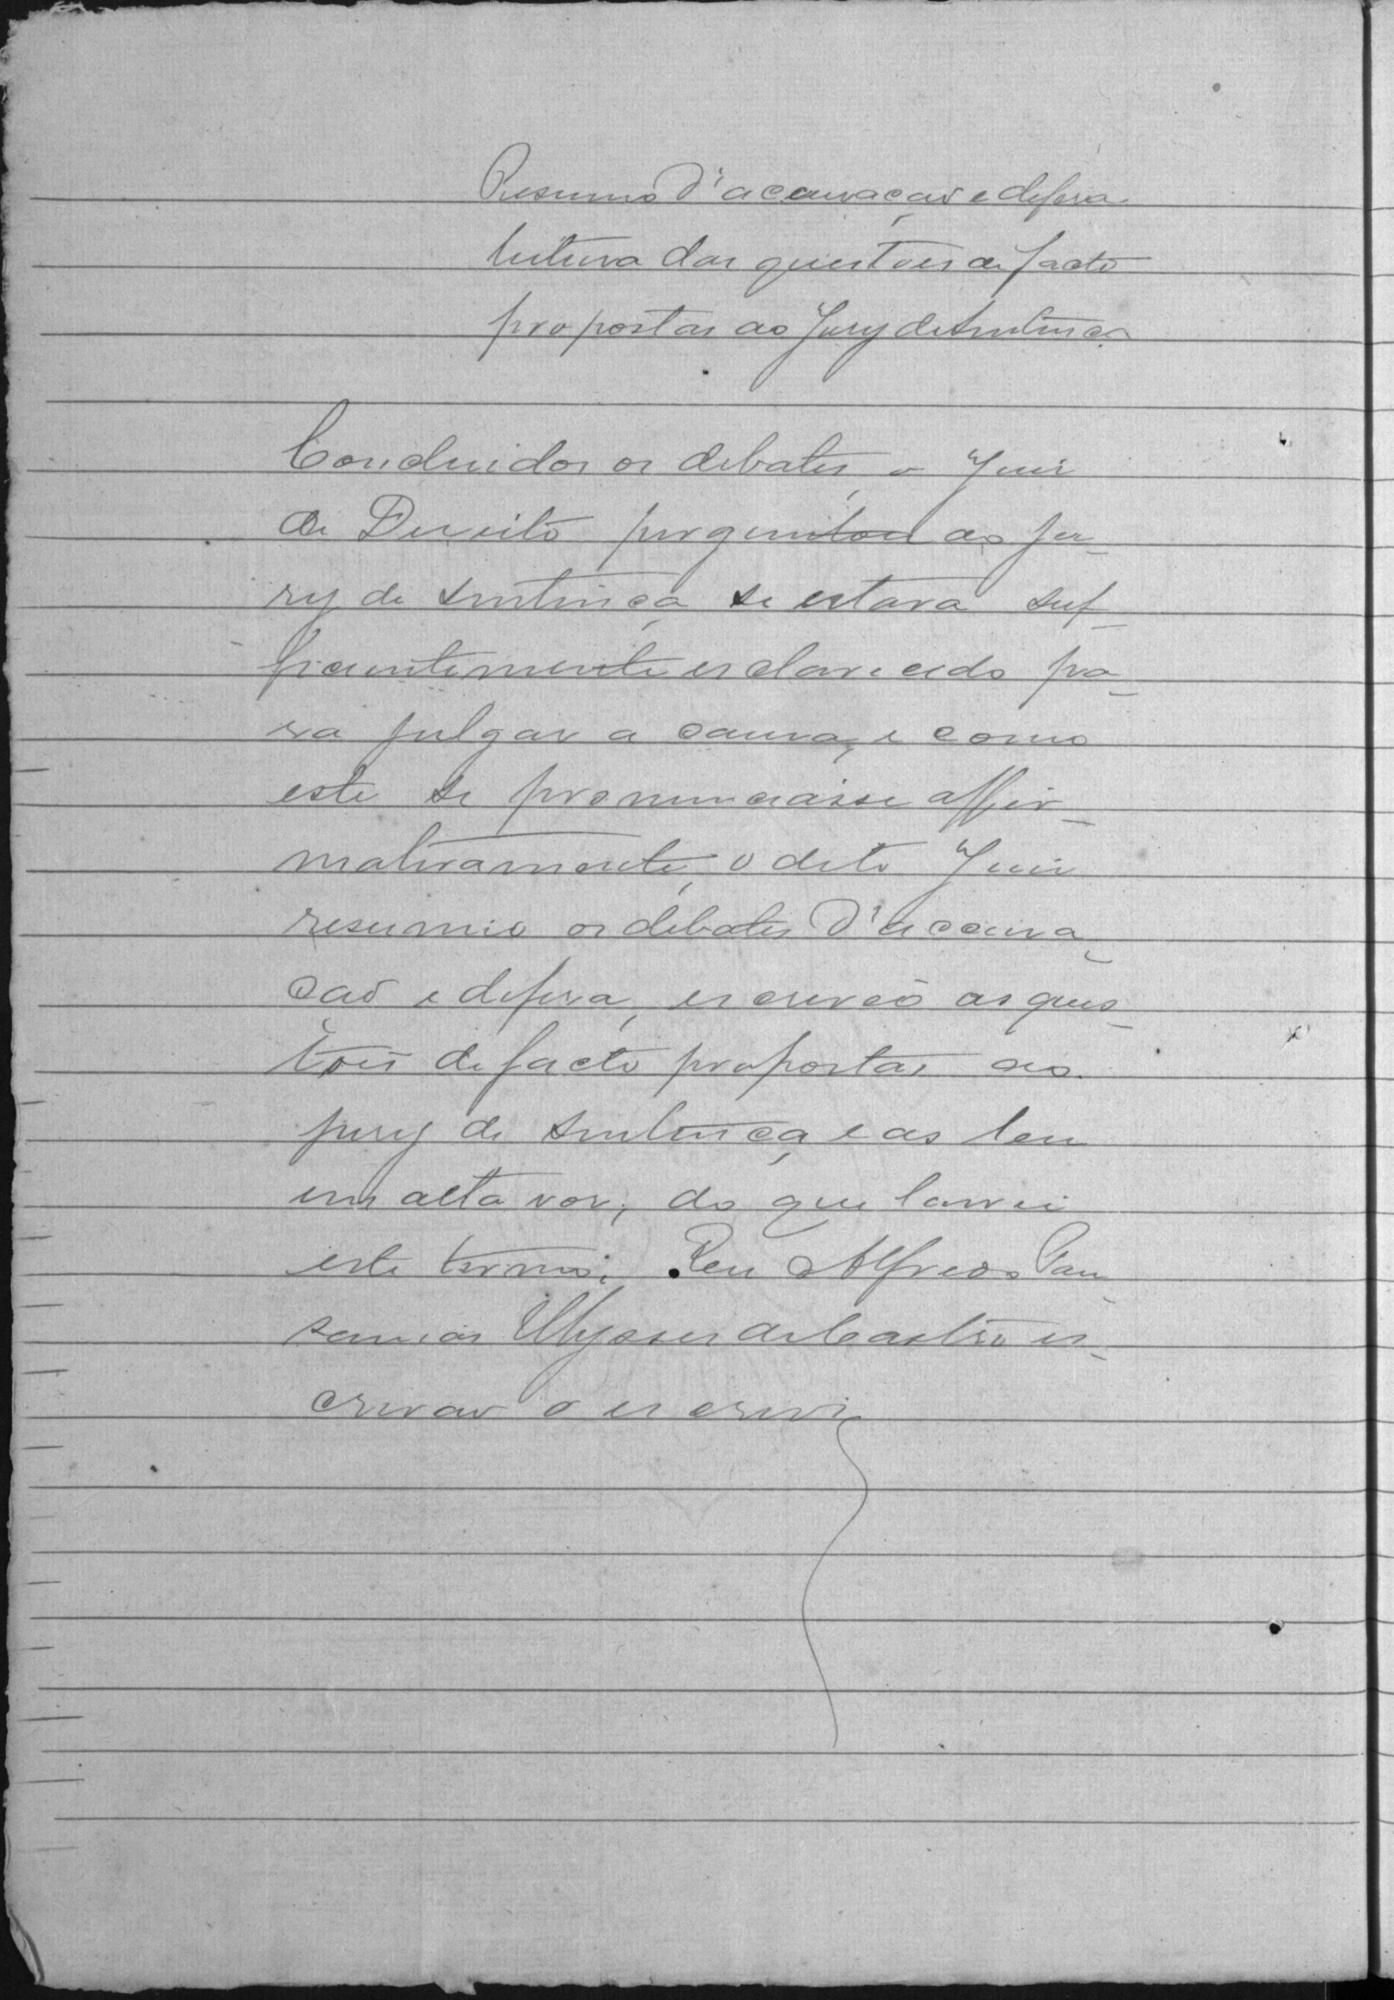 Resumo d'accusação e defesa
leitura das questões de facto
propostas ao Jury de Sentença
Concluidos os debates, o Juiz
de Direito perguntou ao Ju-
ry de sentença se estava suf-
ficientemente esclarecido pa-
ra julgar a causa, e como
este se pronunciasse affir-
mativamente, o dito Juiz
resumio os debates d'accusa-
ção e defesa, escreveo as ques-
tões de facto propostas ao
jury de sentença e as leu
em alta voz, do que lavrei
este termo. Eu Alfredo Pau-
sanias Ulysses de Castro es-
crivão o escrevi